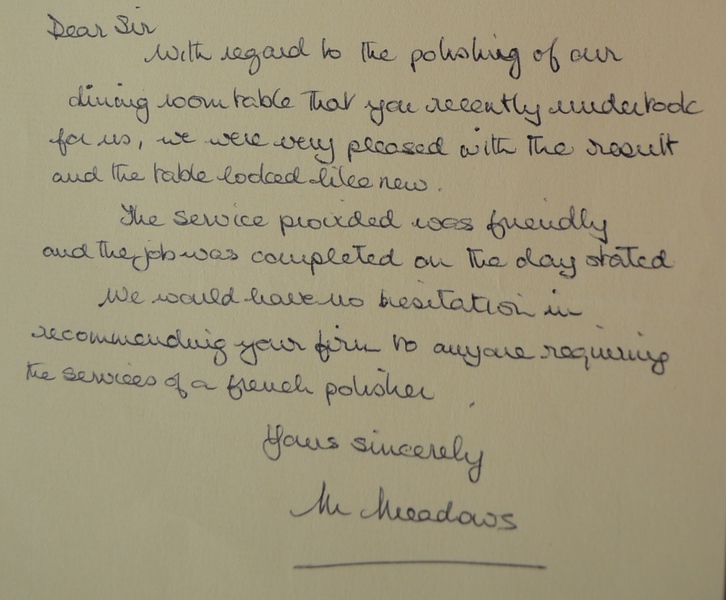 Dear Sir
With regard to the polishing of our
dining room table that you recently undertook
for us, we were very pleased with the result
and the table looked like new.
The service provided was friendly
and the job was completed on the day stated
We would have no hesitation in
recommending your firm to anyone requiring
the services of a french polisher
Yours sincerely
M Meadows